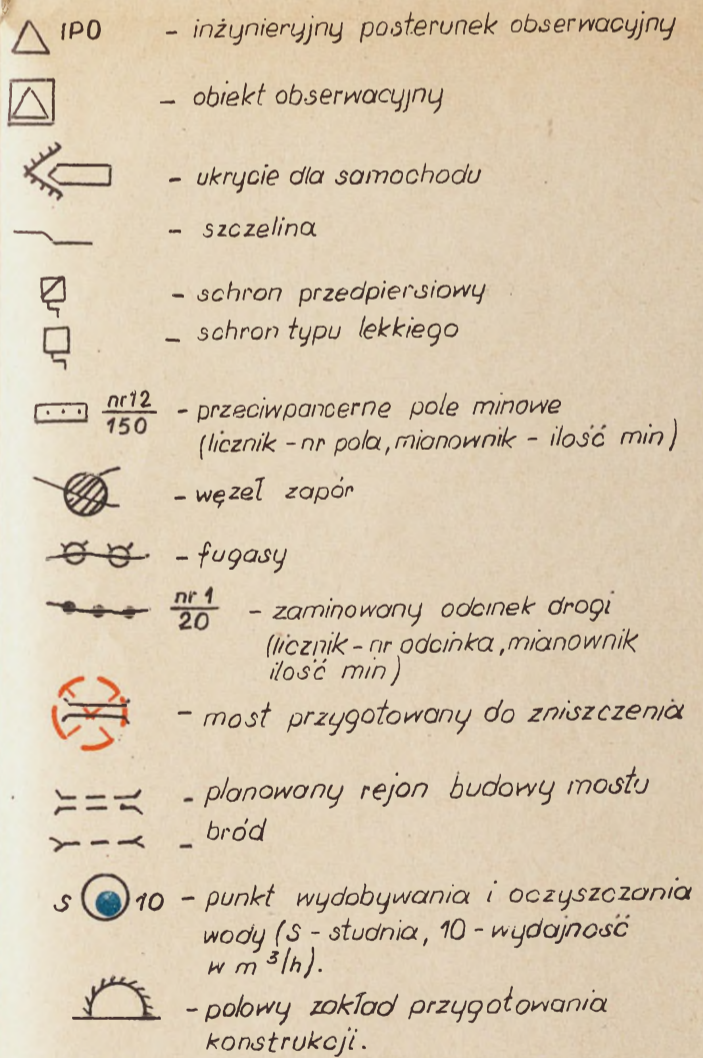 IPO - inżynieryjny posterunek obserwacyjny
- obiekt obserwacyjny
- ukrycie dla samochodu
- szczelina
- schron przedpiersiowy
- schron typu lekkiego
nr12
150
- przeciwpancerne pole minowe
(licznik - nr pola, mianownik - ilość min)
- węzeł zapór
- fugasy
nr 1
20
- zaminowany odcinek drogi
(licznik - nr odcinka, mianownik
ilość min)
- most przygotowany do zniszczenia
- planowany rejon budowy mostu
- bród
S 10 - punkt wydobywania i oczyszczania
wody (S - studnia, 10 - wydajność
w m³/h).
- polowy zakład przygotowania
konstrukcji.